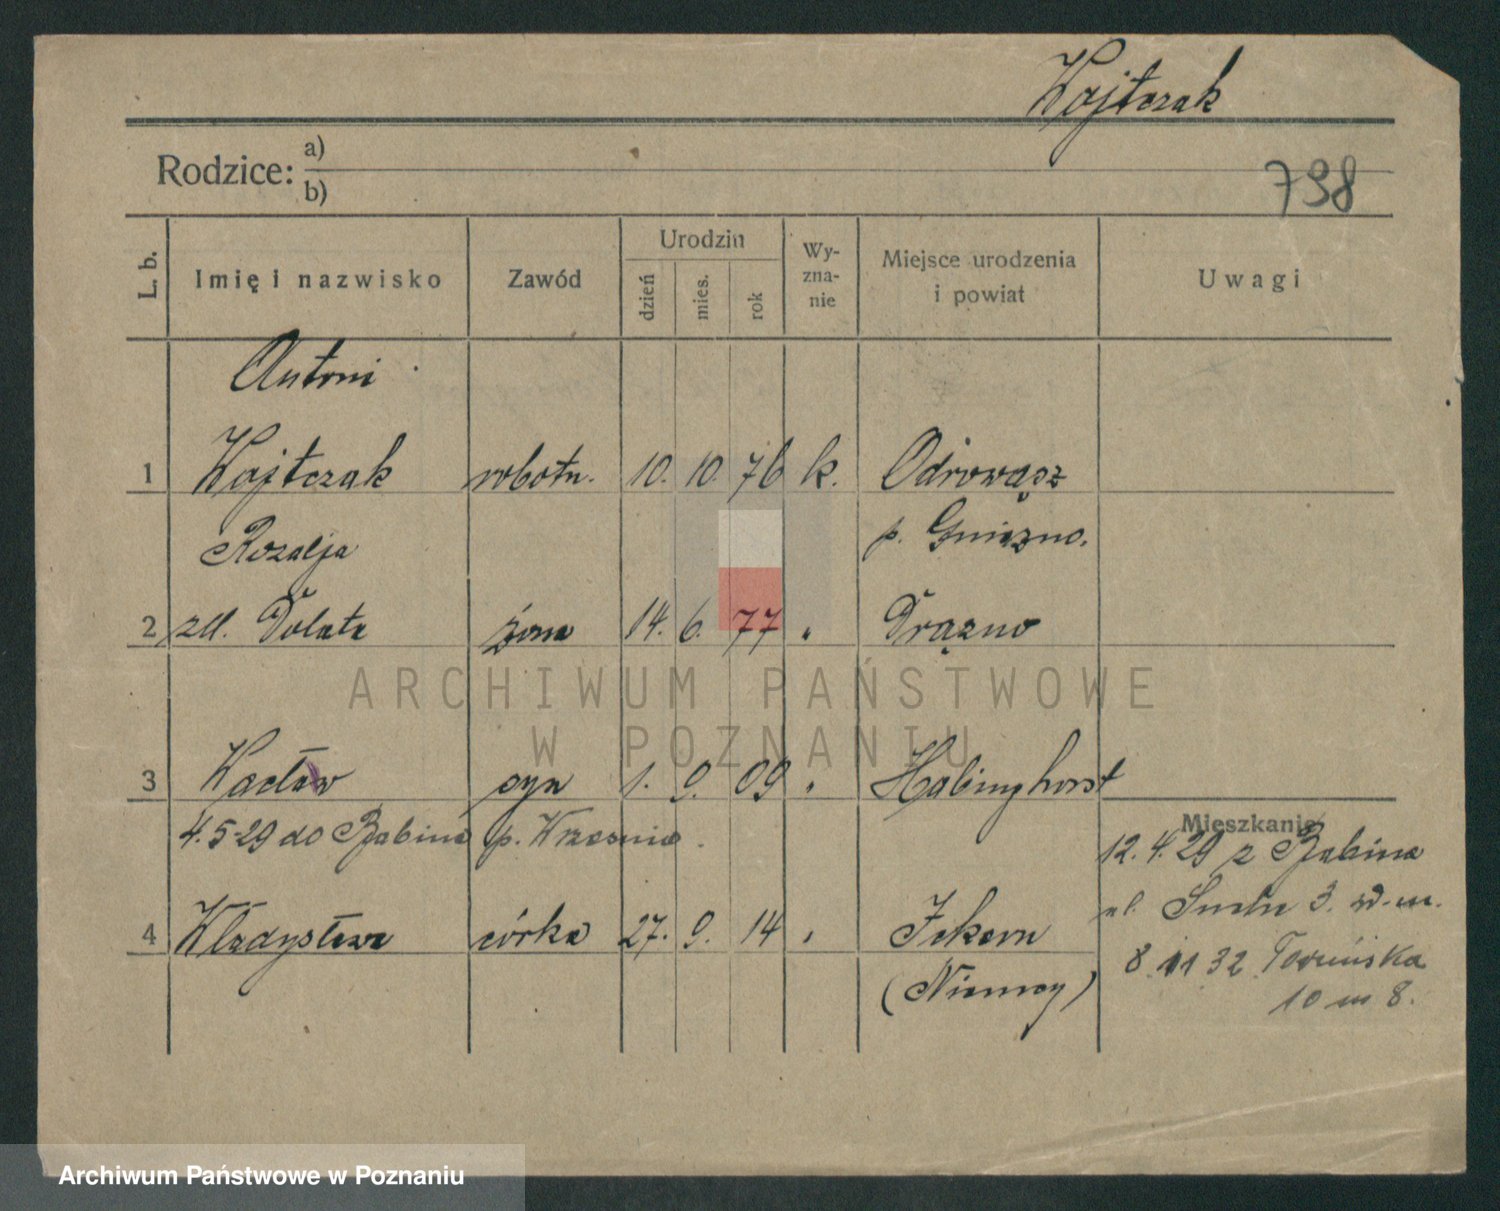 Wojtczak
Rodzice: a)
b)
798
L. b. Imię i nazwisko Zawód Urodzin dzień mies. rok Wy-zna-nie Miejsce urodzenia i powiat Uwagi
Antoni
1 Wojtczak robotn. 10. 10. 76 k. Odrowąsz
Rozalja p. Gniezno.
2 zd. Dolata żona 14. 6. 77 " Drązno
ARCHIWUM PAŃSTWOWE
W POZNANIU
3 Wacław syn 1. 9. 09 " Habinghorst
Mieszkanie
4.5-29 do Babina p. Września. 12.4.29 z Babina
ul. 3.
4 Władysława córka 27. 9. 14 " Ickern
8 11 32 Toruńska
(Niemcy) 10 m 8.
Archiwum Państwowe w Poznaniu